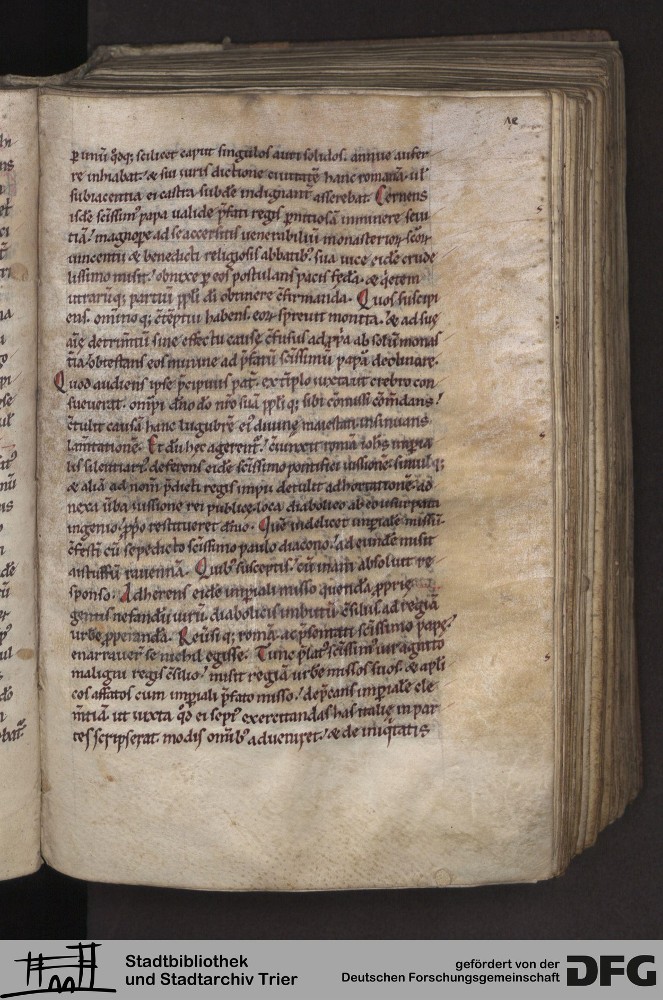 ꝑ unū q̄dq; scilicet caput singulos auri solidos. annue aufer
re inhiabat. & sui iuris dictione civitatē hanc romanā. ul'
subiacentia ei castra subde indignant asserebat. Cernens
isdē sc̄issim' papa valide p̄fati regis ꝑnitiosā inminere sevi
tiā. magnope ad se accersitis venerabiliū monasterior. sc̄or
vincentii & benedicti religiosis abbatib'. sua vice eidē crude
lissimo misit. obnixe ꝑ eos postulans pacis fędera. & q̄etem
utrarūq; partiū ppl'i dī obtinere c̄firmanda. Quos suscipi
ens. omnino q; c̄teptui habens. eor sprevit monita. & ad suę
aīę detrim̄tū sine effectu causę c̄fusus ad ꝓpa absolū monas
t'ia. obtestans eos minime ad p̄fatū sc̄issimū papā declinare.
Quod audiens ipse p̄cipuus pat. extēplo iuxta ut crebro con
sueverat. omp̄i dn̄o do nr̄o suā ppl'i q; sibi c̄missi c̄mdans.
c̄tulit causā hanc lugubrē ei' divinę maiestati insinuans
lam̄tationē. Et dū hec agerent. c̄iunxit romā ioh's inpia
lis silentiari'. deferens eidē sc̄issimo pontifici iussionē. simul q;
& aliā ad nom̄ p̄dicti regis impii detulit adhortationē. ad
nexā. ubi iussione rei publicę loca diabolico ab eo usurpata
ingenio. ꝓprio restitueret dn̄io. Quē videlicet imꝑiale missū
c̄festī cū sepedicto sc̄issimo paulo diacono. ad eundē misit
aistulfū ravennā. Quib' susceptis. cū inani absolvit re
sponso. Adherens eidē imꝑiali misso quendā ꝓprię
gentis nefandū virū. diabolicis imbutū c̄siliis. ad regiā
urbē ꝓperandā. Reversi q; romā. ac p̄sentati sc̄issimo papę.
enarraver se nichil egisse. Tunc p̄lat' sc̄issim' vir agnito
maligni regis c̄silio. misit regiā urbē missos suos. & apl'i
cos affatos cum imꝑiali p̄fato misso. dep̄cans imꝑialē cle
m̄tiā ut iuxta q̄d ei sepi' exercitandas has italię in par
tes scripserat. modis omib' adveniret. & de iniq̄tatis
Stadtbibliothek
und Stadtarchiv Trier
gefördert von der
Deutschen Forschungsgemeinschaft
DFG